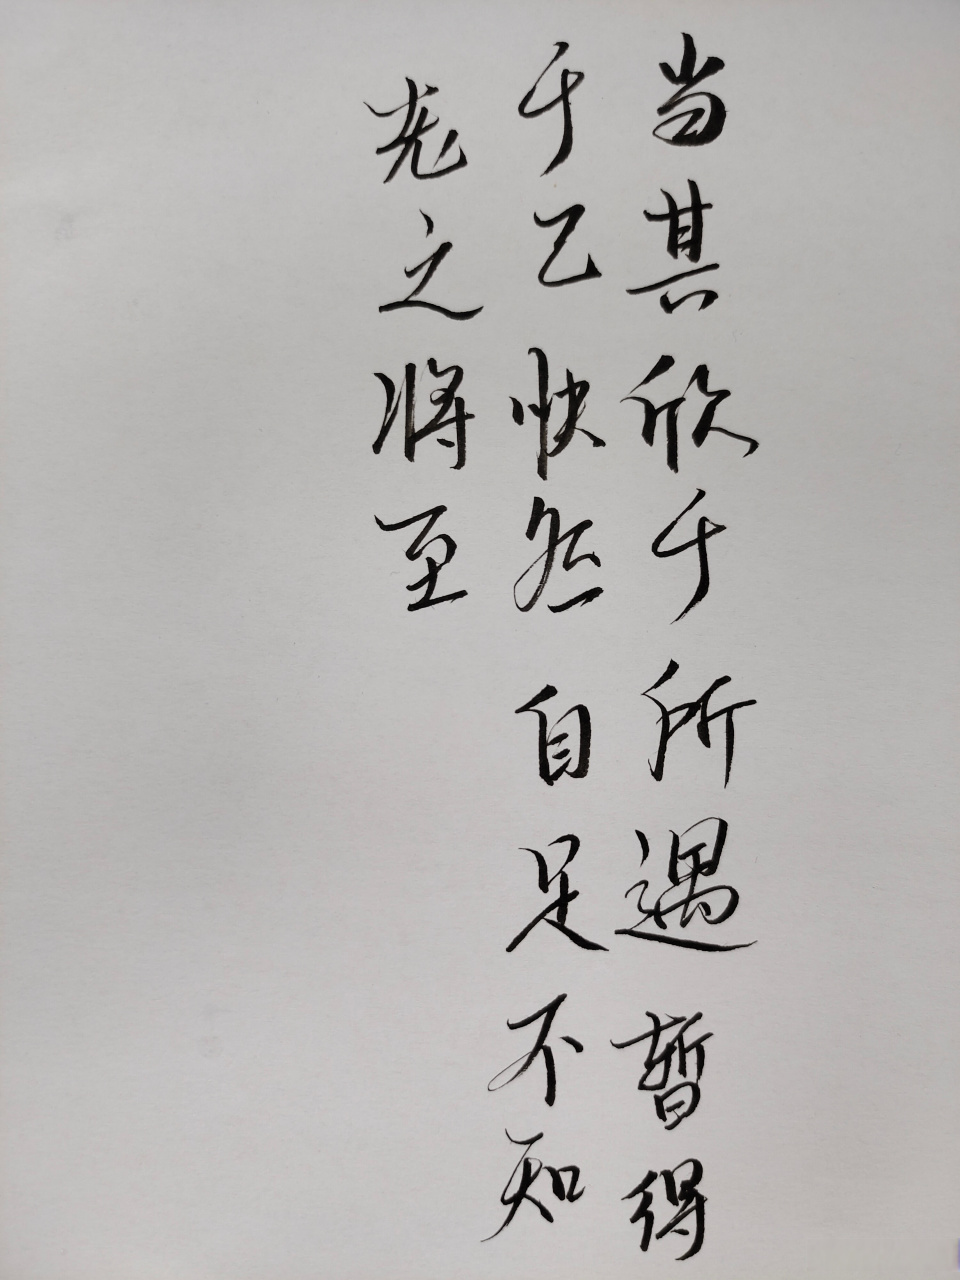 当其欣于所遇暂得
于己快然自足不知
老之将至